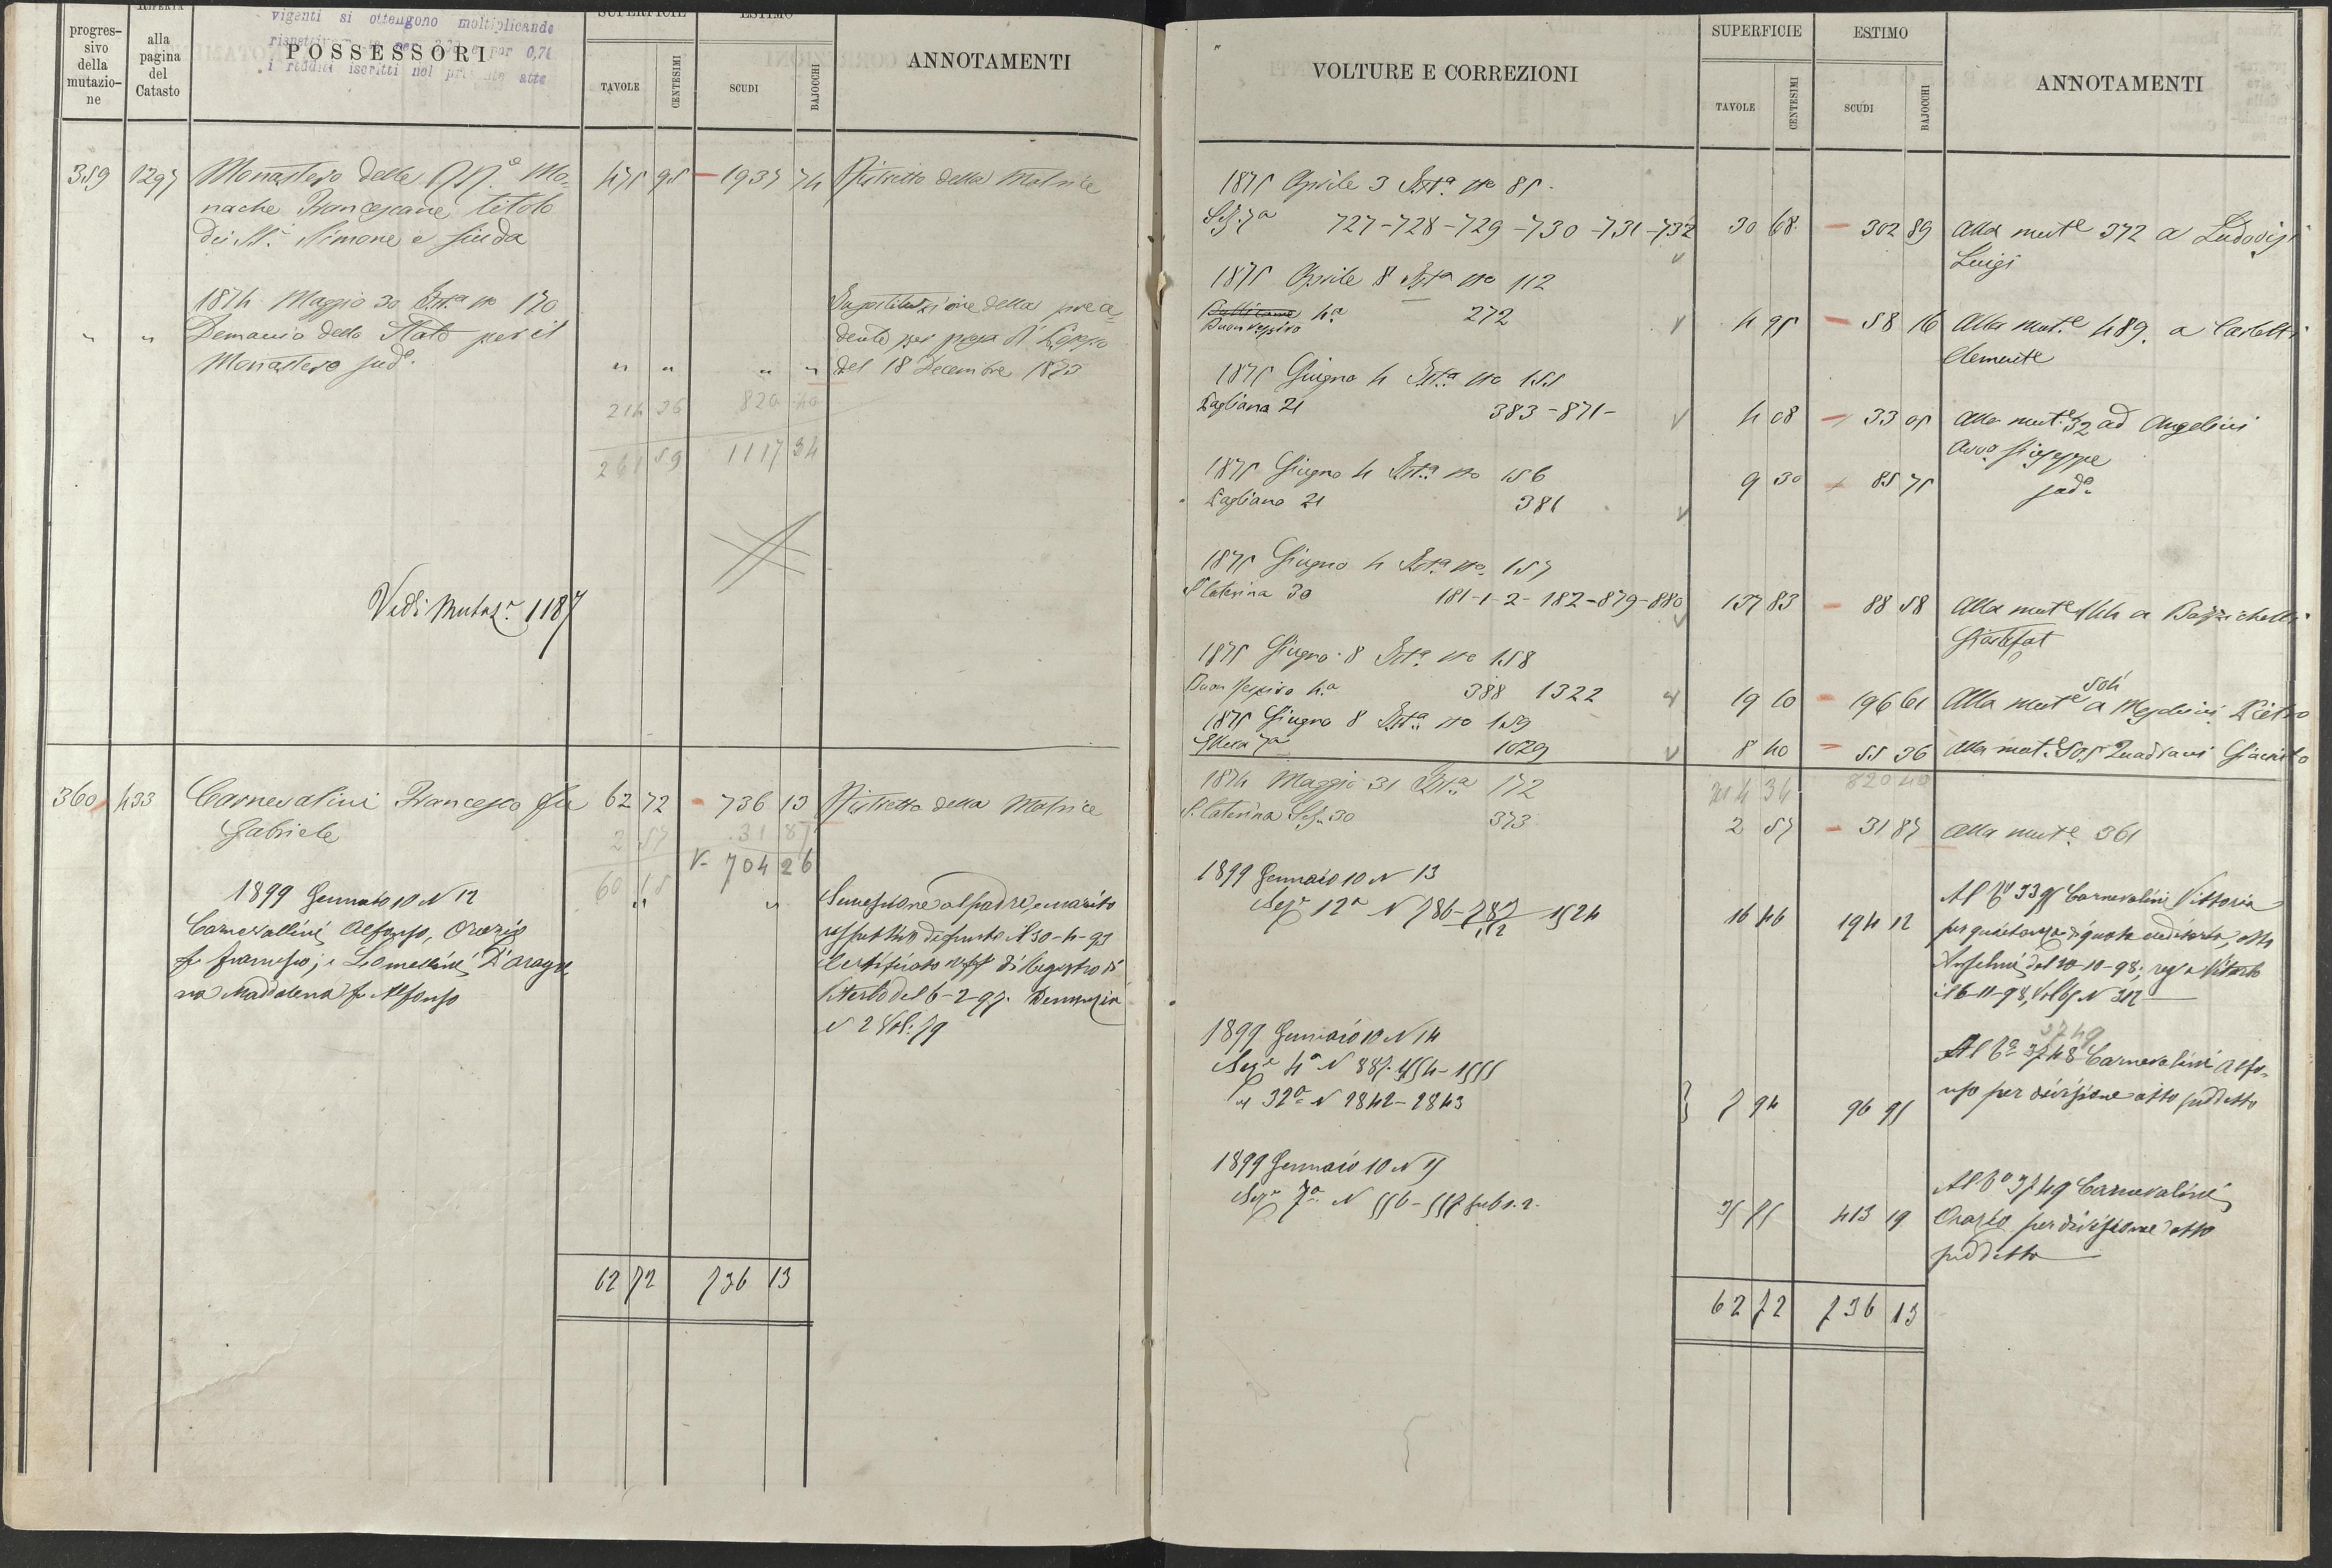 progres-
sivo
della
mutazio-
ne
RIFERTA
alla
pagina
del
Catasto
vigenti si ottengono moltiplicando
per 0,71
i redditi iscritti nel atto
POSSESSORI
SUPERFICIE
TAVOLE
CENTESIMI
ESTIMO
SCUDI
BAJOCCHI
ANNOTAMENTI
359 1297 Monastero delle RR. Mo-
nache Francescane titolo
dei SS. Simone e Giuda
475 95 - 1937 74 Ristretto della Matrice
1874 Maggio 30 Ista no 170
" " Demanio dello Stato per il
Monastero sudo.
" " " "
della prece-
dente per presa di Possesso
del 18 Decembre 1873
214 36 820 40
261 59 1117 34
Vedi Mutaz. 1187
360 433 Carnevalini Francesco fu
Gabriele
62 72 - 736 13 Ristretto della Matrice
2 57 31 87
60 15 V- 704 26
1899 Gennaio 10 N 12
Carnevallini Alfonso, Orazio
fu Francesco; e D'Arago-
na Maddalena fu Alfonso
" "
Successione al padre, e marito
rispettivo defunto il 30-4-93
Certificato di Registro di
Viterbo del 6-2-97. Denunzia
N 2 Vol: 79
62 72 736 13
VOLTURE E CORREZIONI
SUPERFICIE
TAVOLE
CENTESIMI
ESTIMO
SCUDI
BAJOCCHI
ANNOTAMENTI
1875 Aprile 3 Ista no 85.
Sez. 7a 727-728-729-730-731-732 30 68 - 302 89 Alla mute 372 a Ludovisi
Luigi
1875 Aprile 8 Ista no 112
Buonrespiro 4a 272 4 95 - 58 16 Alla mute 489. a Castelli
Clemente
1875 Giugno 4 Ista no 155
Pagliana 21 383-871- 4 08 - 33 05 Alla mute 32 ad Angelini
Avvo Giuseppe
1875 Giugno 4 Ista no 156
Pagliana 21 381 9 30 85 75 sudo.
1875 Giugno 4 Ista no 157
S Caterina 30 181-1-2-182-879-880 137 83 - 88 58 Alla mute a Bazzichelli
Giosafat
1875 Giugno 8 Ista no 158
Buon Respiro 4a 388 1322 19 10 - 196 61 Alla mute 504 a Pietro
1875 Giugno 8 Ista no 159
7a 1029 8 40 - 55 36 Alla mut. 505 Quadrani Giacinto
214 34 820 40
1874 Maggio 31 Ista 172
S. Caterina Sez. 30 373 2 57 - 31 87 Alla mute. 361
1899 Gennaio 10 N 13
Seze 12a N 786-787 1524 16 46 194 12 Al Carnevalini Vittoria
per quietanza di quota ereditaria, atto
Anselmi del 20-10-98; reg. a Viterbo
N 312
1899 Gennaio 10 N 14
Seze 4a N 887. 1554-1555
" 32a N 2842-2843 7 94 96 95
3749
Al 3748 Carnevalini Alfo-
nso per divisione atto suddetto
1899 Gennaio 10 N 15
Seze 7a N 556-557 sub 1.2. 35 75 413 19
Al 3749 Carnevalini
Orazio per divisione atto
suddetto
62 72 736 13